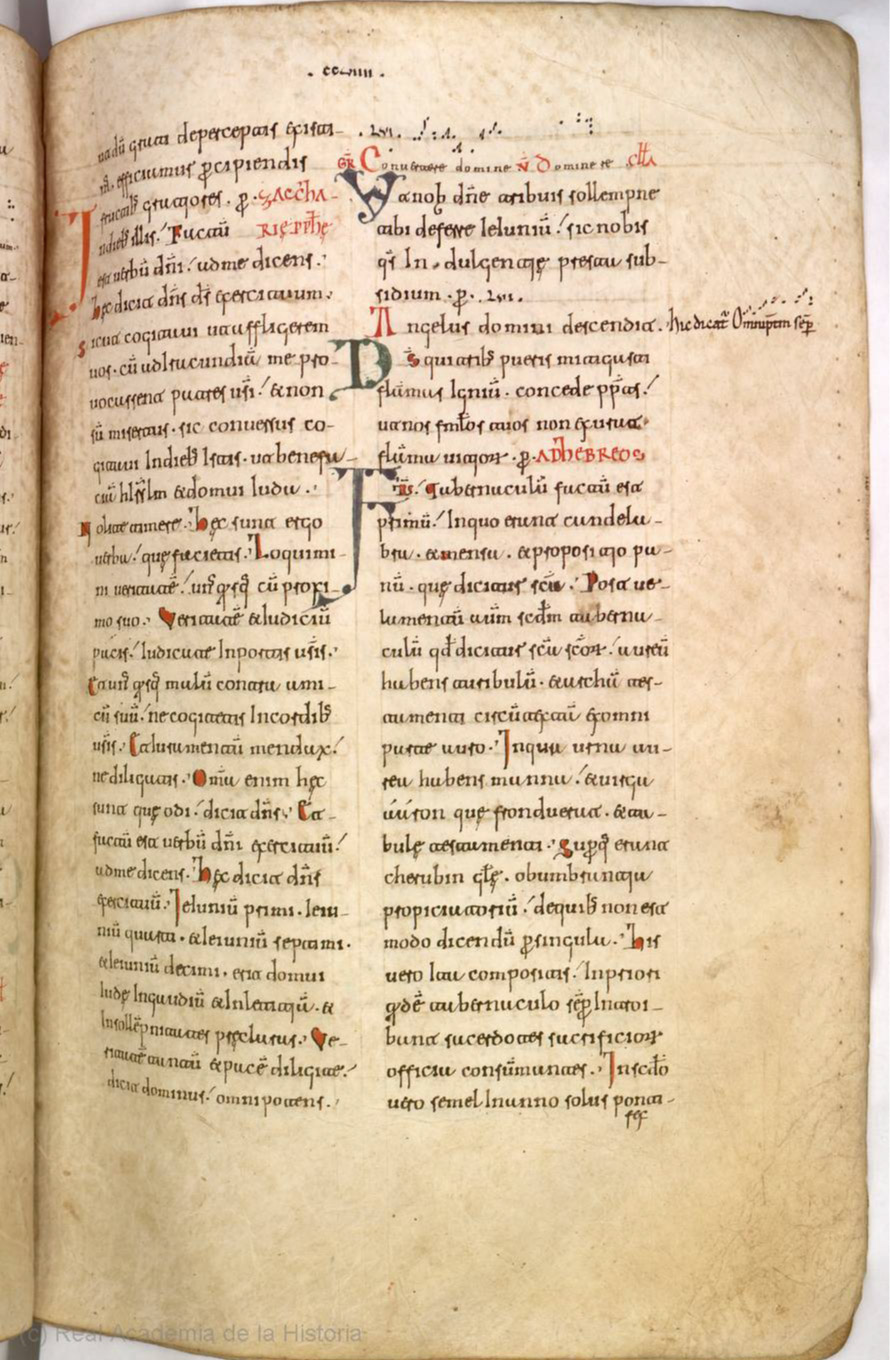 . ccLviiii .
grati de perceptis existi-
efficiamur p̄cipiendis
fructib; gratiores . p̄ . ZACCHA-
In dieb; illis: Factū RIĘ PP̄HĘ
est verbū dn̄i: ad me dicens:
Hęc dicit dn̄s ds̄ exercituum.
Sicut cogitavi ut affligerem
vos . cū ad iracundiā me pro-
vocassent patres vr̄i: & non
sū misertus . sic conversus co-
gitavi In dieb; Istis . ut benefa-
ciā hIr̄slm & domui Iuda .
Nolite timere . Hęc sunt ergo
verba: quę facietis . Loquimi-
ni veritatē: unq̄sq̄ cū proxi-
mo suo . Veritatē & Iudiciū
pacis: Iudicate In portis vr̄is .
Et unq̄sq̄ malū contra ami-
cū suū: ne cogitetis In cordib;
vr̄is . Et Iuramentū mendax:
ne diligatis . Omnia enim hęc
sunt quę odi: dicit dn̄s . Et
factū est verbū dn̄i exercituū:
ad me dicens . Hęc dicit dn̄s
exercituū . Ieiuniū primi . Ieiu-
niū quarti . & Ieiuniū septimi .
& Ieiuniū decimi . erit domui
Iudę In gaudiū & In letitiā . &
In sollēpnitates pręclaras . Ve-
ritatē tantū & pacē diligite:
dicit dominus: omnipotens .
. Lvi .
GR̄ Convertere domine V̄ Domine re CLLA
Ut a nob; dn̄e tribuis sollempne
tibi deferre Ieiuniū: sic nobis
qs̄ Indulgentię presta sub-
sidium . p̄ . Lvi .
Angelus domini descendit . hic dicat̄ Omnip̄tm sēp̄
Ds̄ qui trib; pueris mitigasti
flām̄as Igniū . concede pp̄as:
ut nos fm̄los tuos non exurat
flām̄a vitior . p̄ . AD HEBREOS
Fr̄s . Tabernaculū factū est
primū: In quo erant candela-
bra . & mensa . & propositio pa-
nū . quę dicitur scā . Post ve-
lamentū aūm scdm̄ taberna-
culū qd̄ dicitur scā scōr: aureū
habens turibulū . & archā tes-
tamenti circūtectā ex omni
parte auro . In qua urna au-
rea habens manna: & virga
aaron que fronduerat . & ta-
bulę testamenti . Supq̄ erant
cherubin glę . obumbrantia
propiciatoriū: de quib; non est
modo dicendū p̄ singula . His
vero Ita compositis: In priori
qdē tabernaculo sēp̄ Introi-
bant sacerdotes sacrificior
officia consūmantes . In scdō
vero semel In anno solus ponti-
fex
(c) Real Academia de la Historia